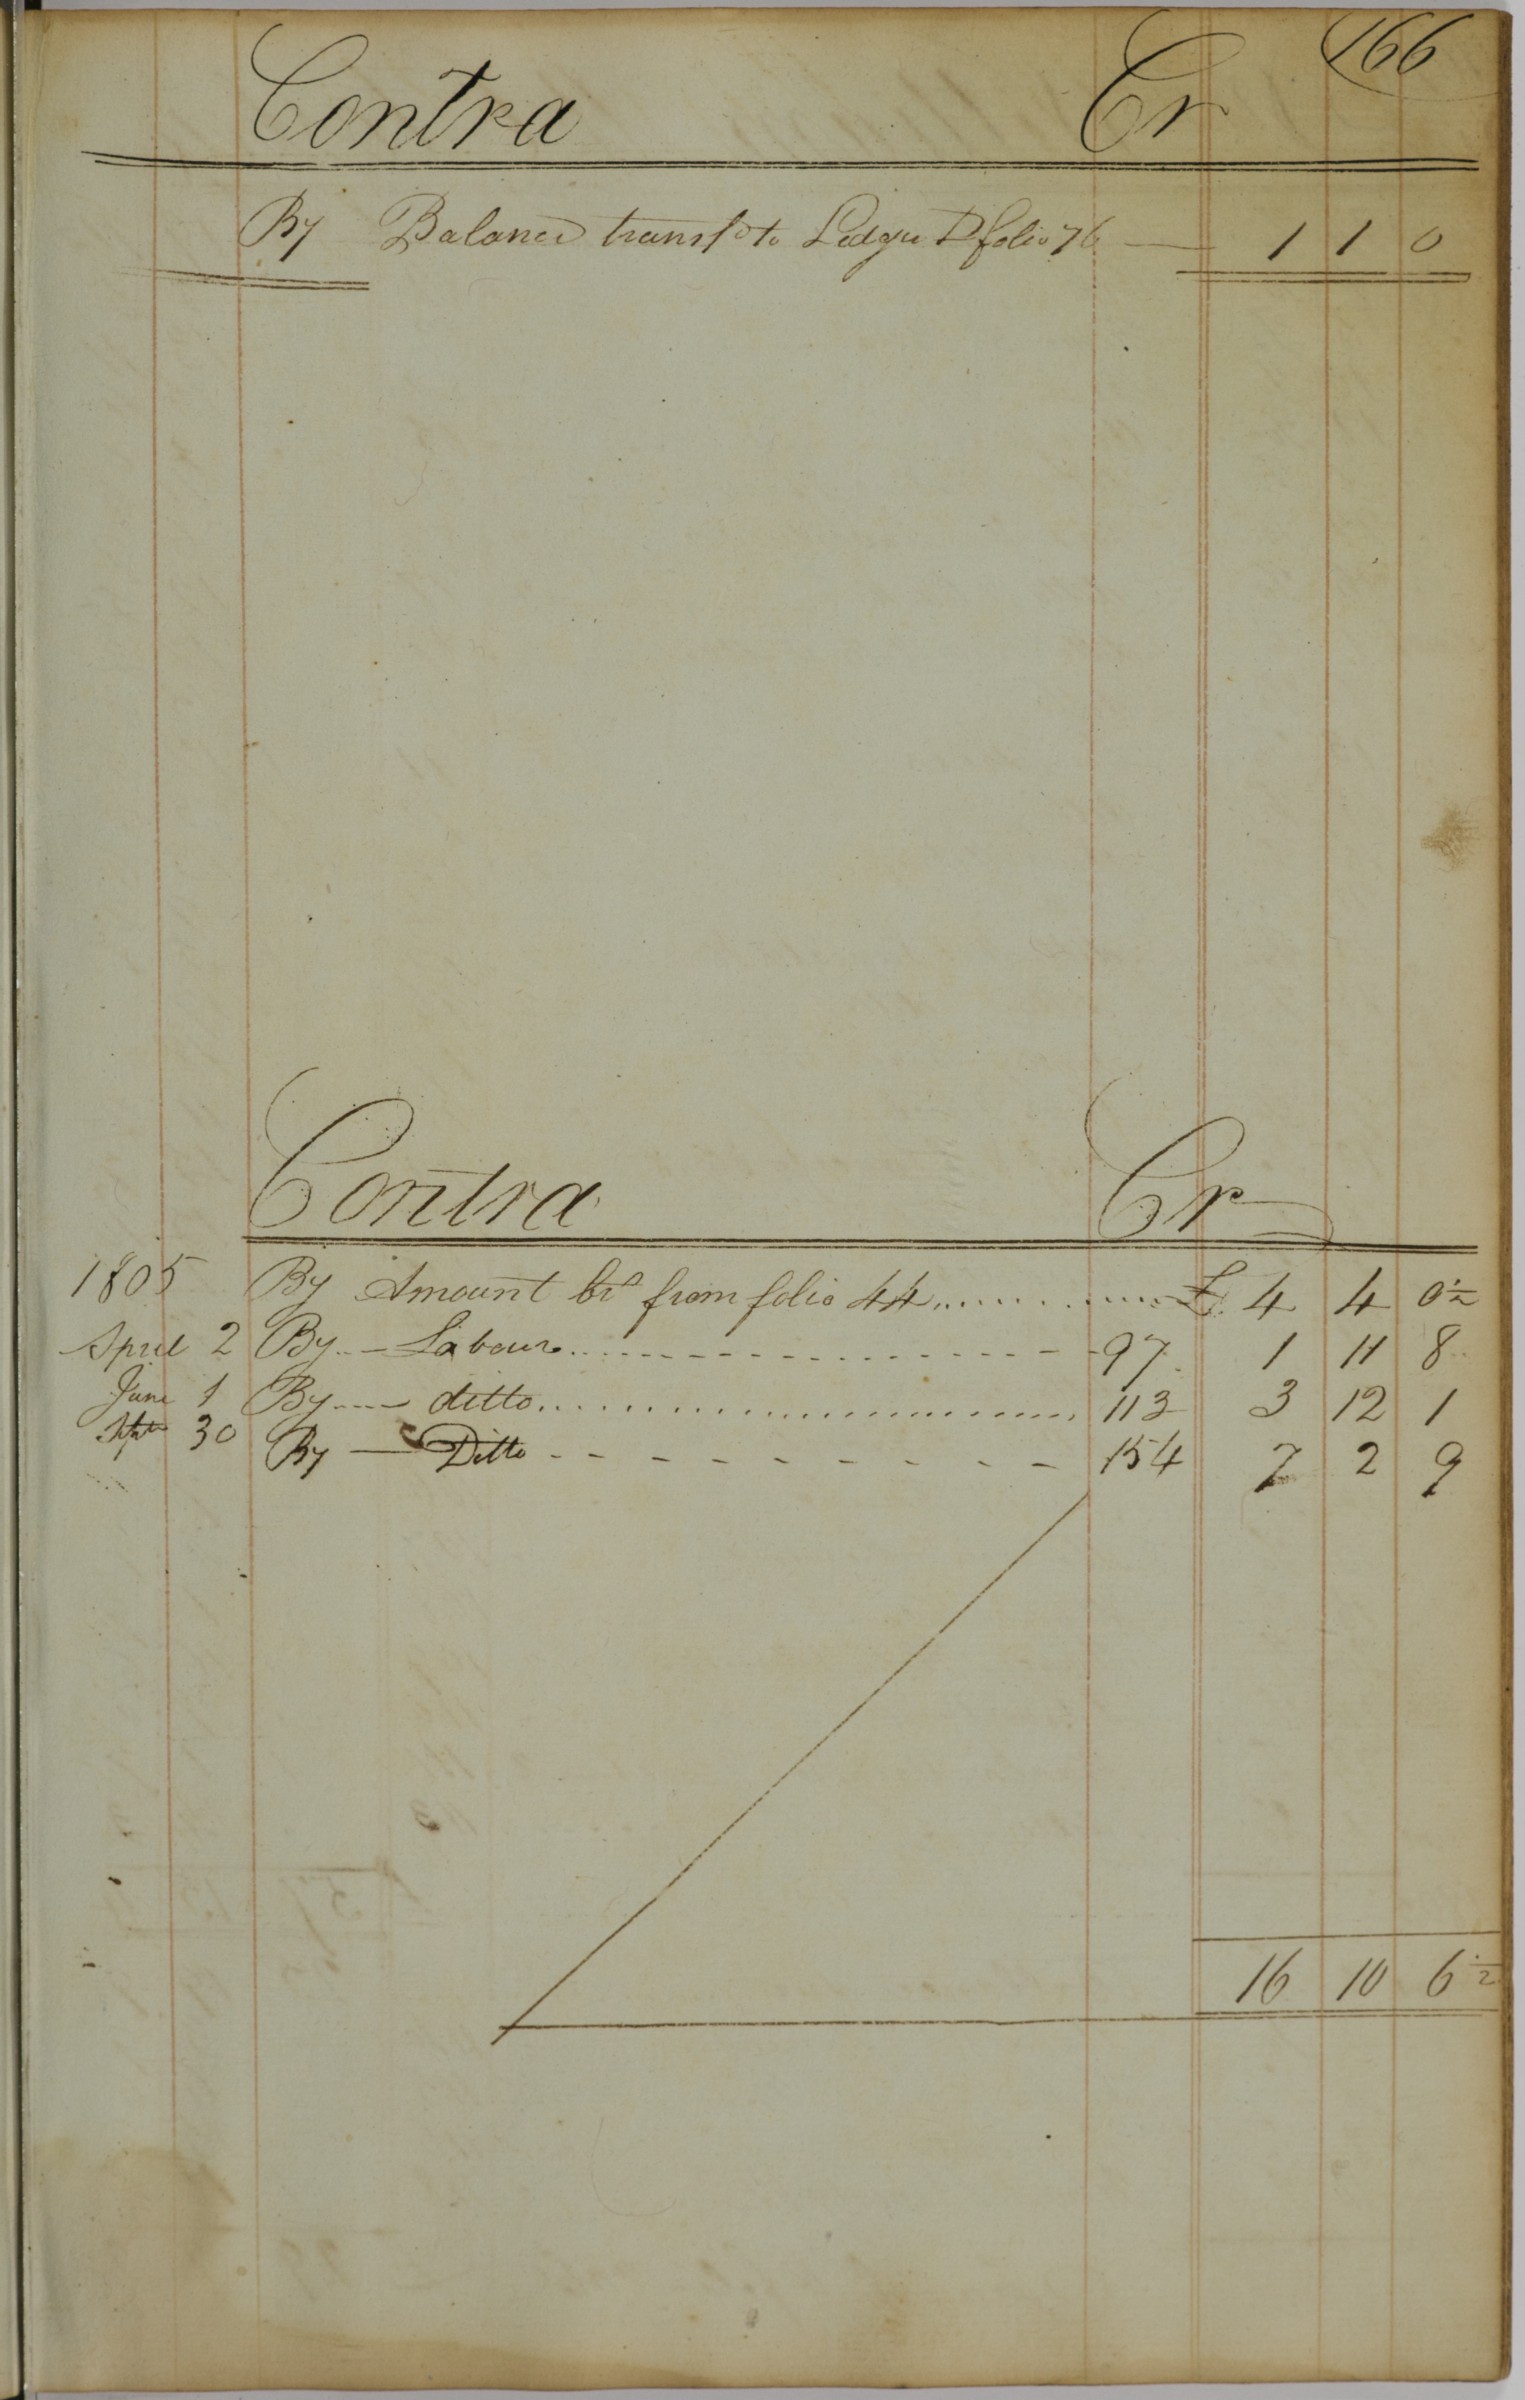 166
Contra Cr
By Balance transfd to Ledger D folio 76 — 1 1 0
Contra Cr
1805 By Amount bt from folio 44 ........ £ 4 4 0 1/2
April 2 By -- Labour ........ 97 1 11 8
June 1 By ---- ditto ........ 113 3 12 1
Septr 30 By — Ditto - - - - - - - - - - 154 7 2 9
16 10 6 1/2